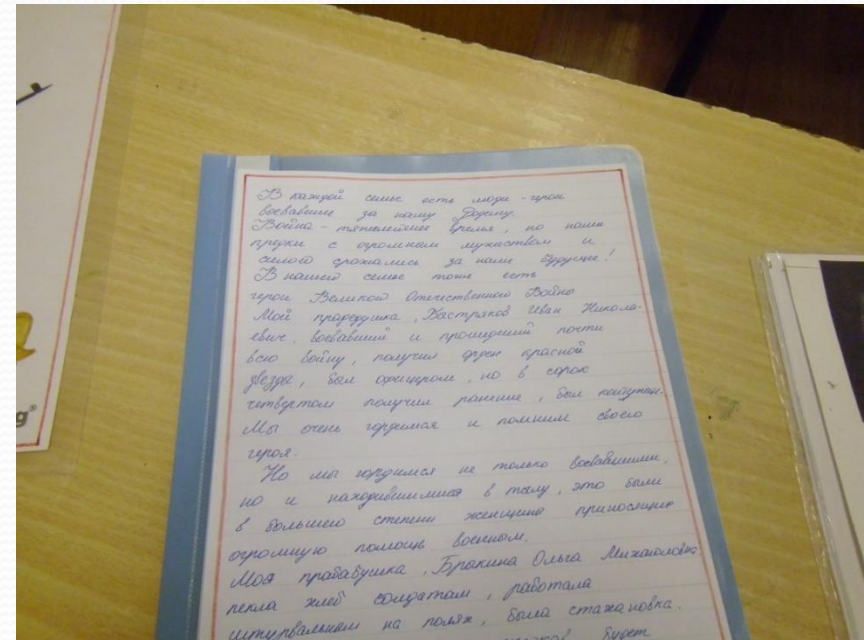 В каждой семье есть люди - герои
воевавшие за нашу Родину.
Война - тяжелейшее время, но наши
предки с огромным мужеством и
силой сражались за наше будущее!
В нашей семье тоже есть
герои Великой Отечественной Войны
Мой прадедушка, Вастряков Иван Никола-
евич, воевавший и прошедший почти
всю войну, получил орден красной
звезды, был офицером, но в сорок
четвертом получил ранение, был контужен.
Мы очень гордимся и помним своего
героя.
Но мы гордимся не только воевавшими,
но и находившимися в тылу, это были
в большего степени женщины приносящие
огромную помощь военным.
Моя прабабушка, Брякина Ольга Михайловна
пекла хлеб солдатам, работала
штурвальным на полях, была стахановка.
будет
g®